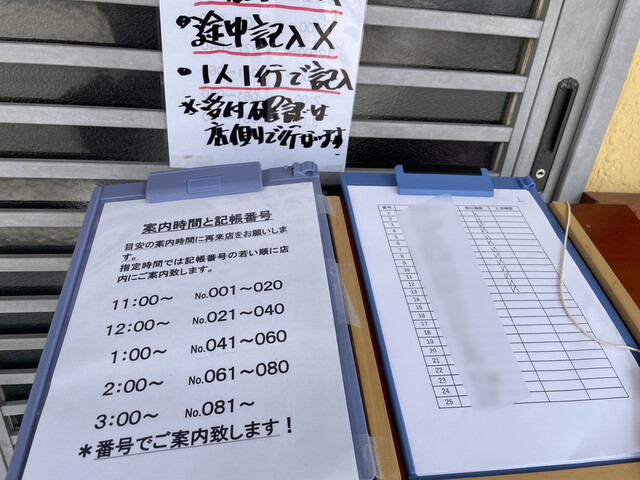 ・途中記入X
・1人1行で記入
※受付確認は
店側で行ないます
案内時間と記帳番号
目安の案内時間に再来店をお願いしま
す。
指定時間では記帳番号の若い順に店
内にご案内致します。
11:00〜 No.001〜020
12:00〜 No.021〜040
1:00〜 No.041〜060
2:00〜 No.061〜080
3:00〜 No.081〜
*番号でご案内致します!
番号 受付確認 入店確認
1
2
3
4
5
6
7
8
9
10
11
12
13
14
15
16
17
18
19
20
21
22
23
24
25